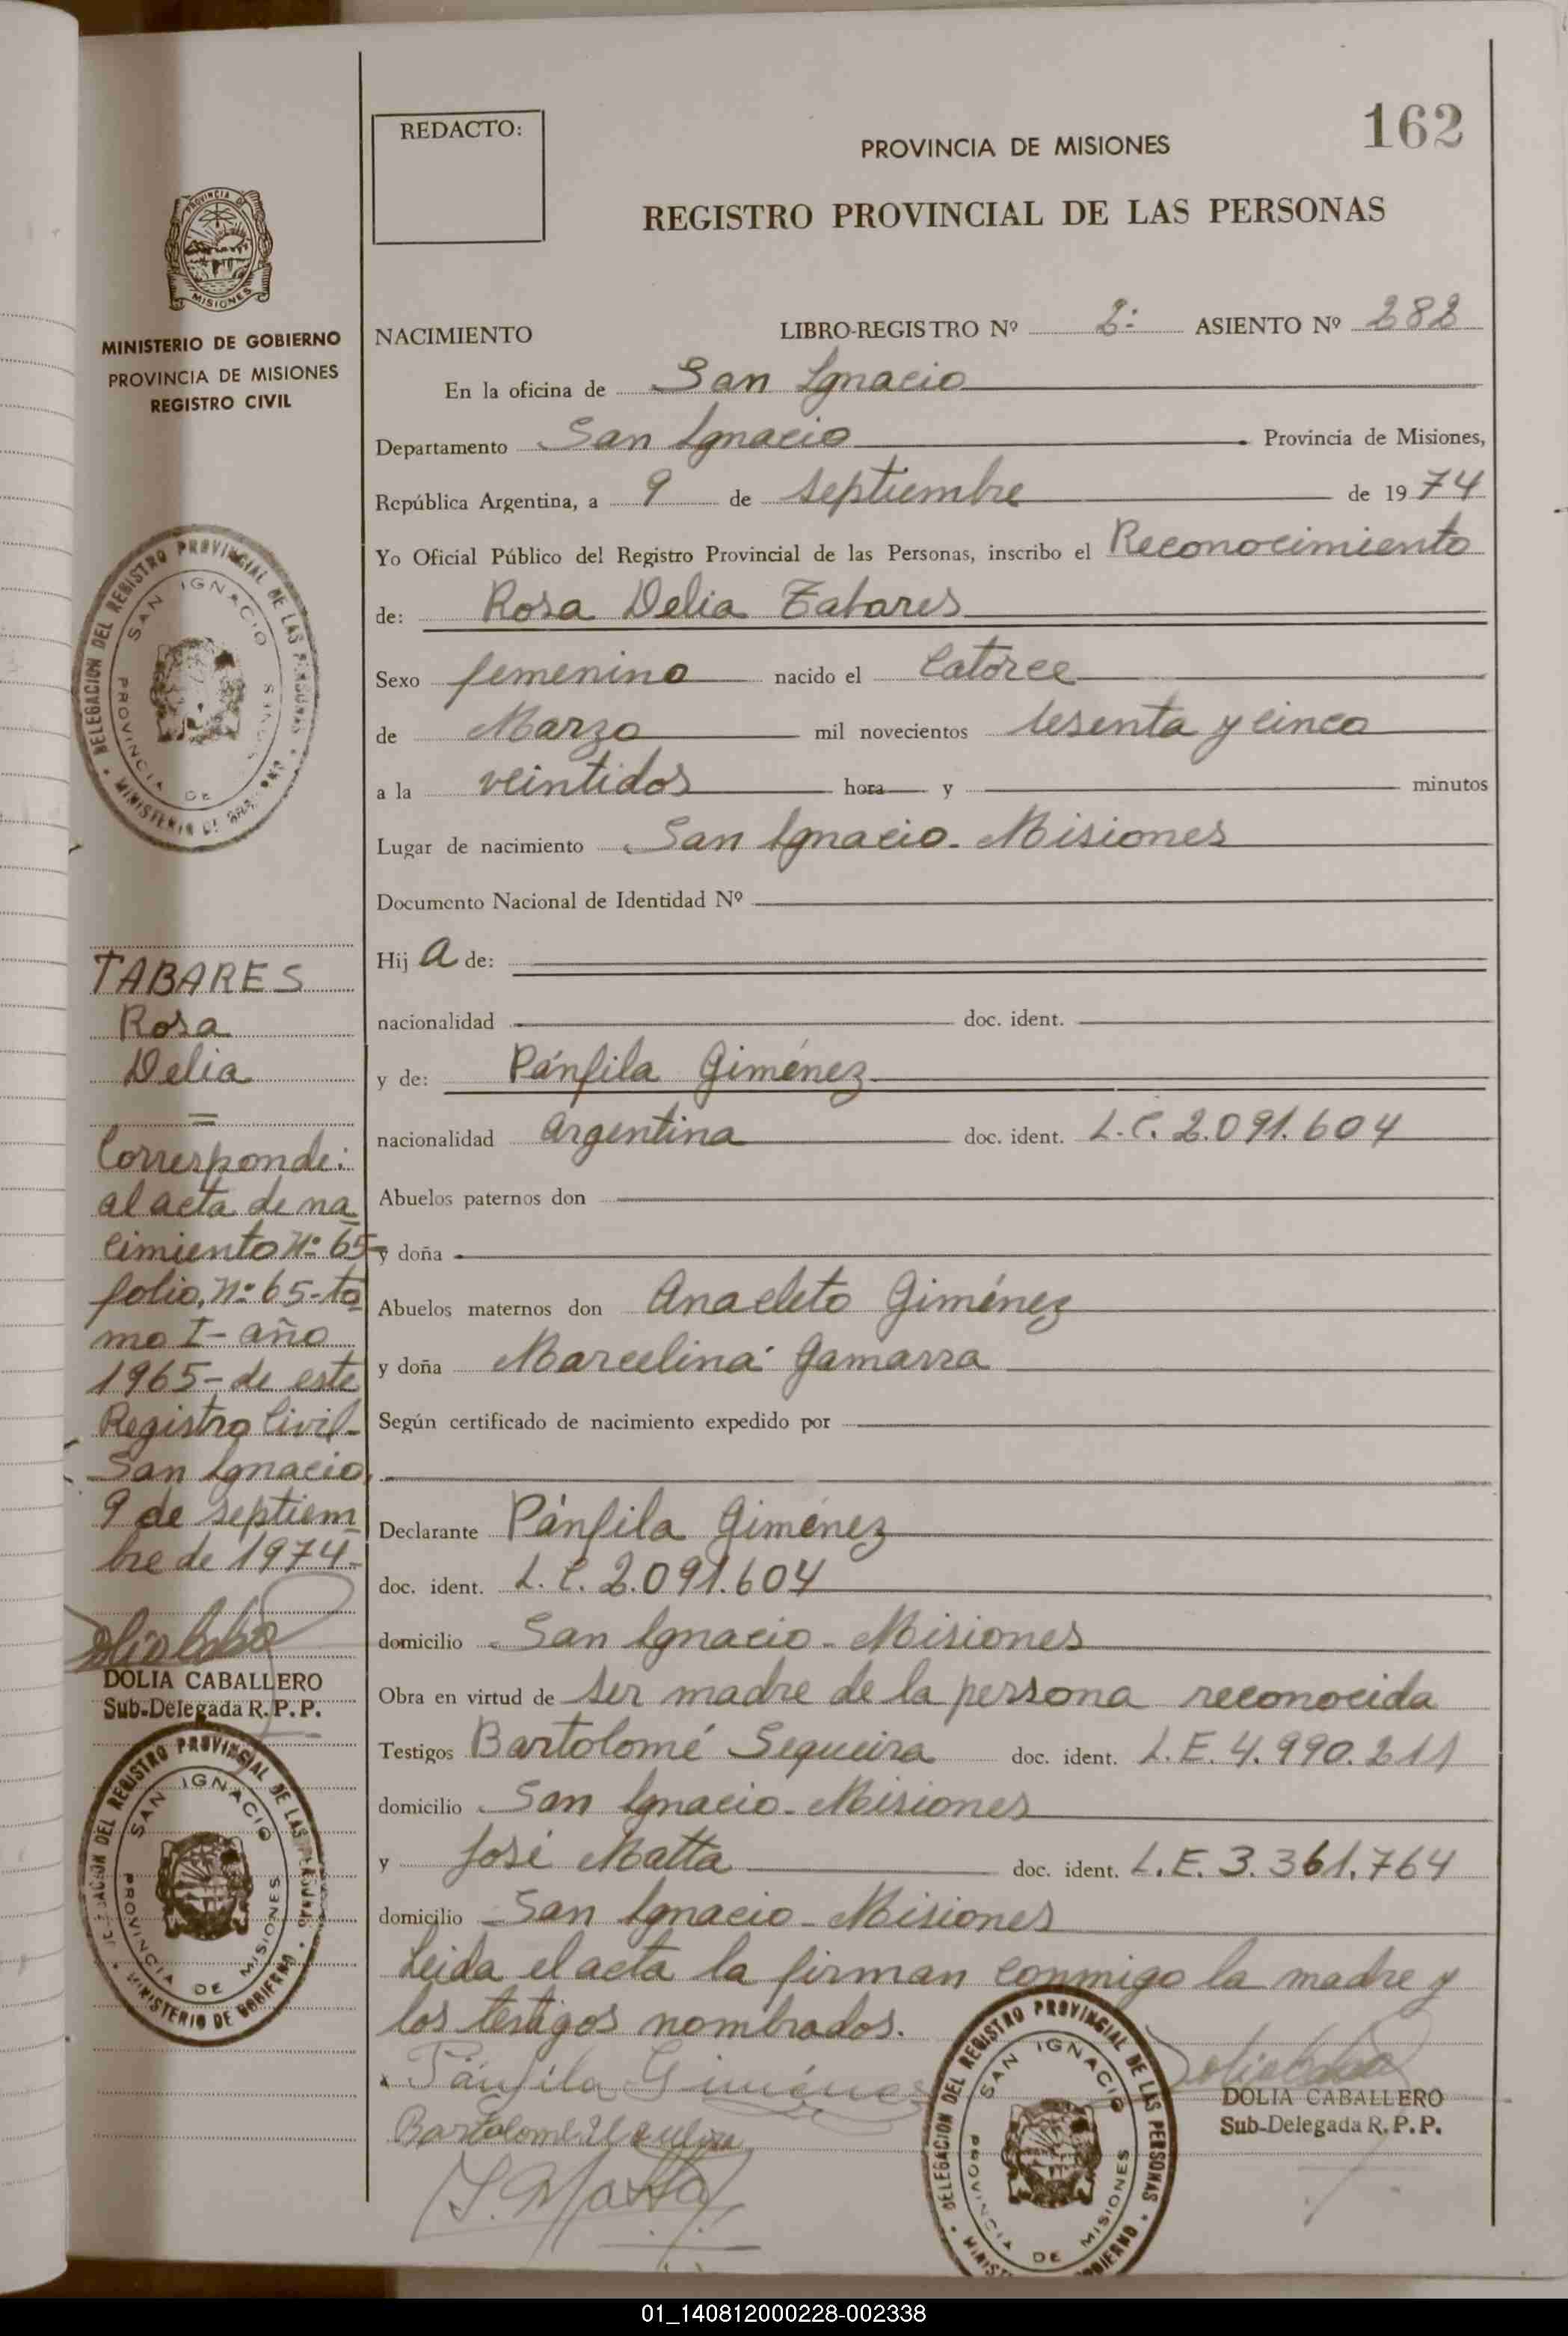 REDACTO:
162
PROVINCIA DE MISIONES
REGISTRO PROVINCIAL DE LAS PERSONAS
PROVINCIA DE
MISIONES
MINISTERIO DE GOBIERNO
PROVINCIA DE MISIONES
REGISTRO CIVIL
NACIMIENTO LIBRO-REGISTRO Nº 2: ASIENTO Nº 282
En la oficina de San Ignacio
Departamento San Ignacio Provincia de Misiones,
República Argentina, a 9 de septiembre de 1974
Yo Oficial Público del Registro Provincial de las Personas, inscribo el Reconocimiento
de: Rosa Delia Tabares
Sexo femenino nacido el Catorce
de Marzo mil novecientos sesenta y cinco
a la veintidos hora y minutos
Lugar de nacimiento San Ignacio - Misiones
Documento Nacional de Identidad Nº
Hija de:
nacionalidad doc. ident.
y de: Pánfila Giménez
nacionalidad Argentina doc. ident. L.C. 2.091.604
Abuelos paternos don
y doña
Abuelos maternos don Anacleto Giménez
y doña Marcelina Gamarra
Según certificado de nacimiento expedido por
Declarante Pánfila Giménez
doc. ident. L.C. 2.091.604
domicilio San Ignacio - Misiones
Obra en virtud de ser madre de la persona reconocida
Testigos Bartolomé Sequeira doc. ident. L.E. 4.990.211
domicilio San Ignacio - Misiones
y José Matta doc. ident. L.E. 3.361.764
domicilio San Ignacio - Misiones
Leida el acta la firman conmigo la madre y
los testigos nombrados.
Pánfila Giménez
Bartolomé
J. Matta
DOLIA CABALLERO
Sub-Delegada R. P. P.
DELEGACION DEL REGISTRO PROVINCIAL DE LAS PERSONAS
SAN IGNACIO
PROVINCIA DE MISIONES
MINISTERIO DE GOBIERNO
DELEGACION DEL REGISTRO PROVINCIAL DE LAS PERSONAS
SAN IGNACIO
PROVINCIA DE
MINISTERIO DE
TABARES
Rosa
Delia
=
Corresponde:
al acta de na
cimiento Nº 65-
folio, nº 65-to
mo I - año
1965 - de este
Registro Civil-
San Ignacio,
9 de septiem
bre de 1974-
DOLIA CABALLERO
Sub-Delegada R. P. P.
DELEGACION DEL REGISTRO PROVINCIAL DE LAS PERSONAS
SAN IGNACIO
PROVINCIA DE MISIONES
MINISTERIO DE GOBIERNO
01_140812000228-002338